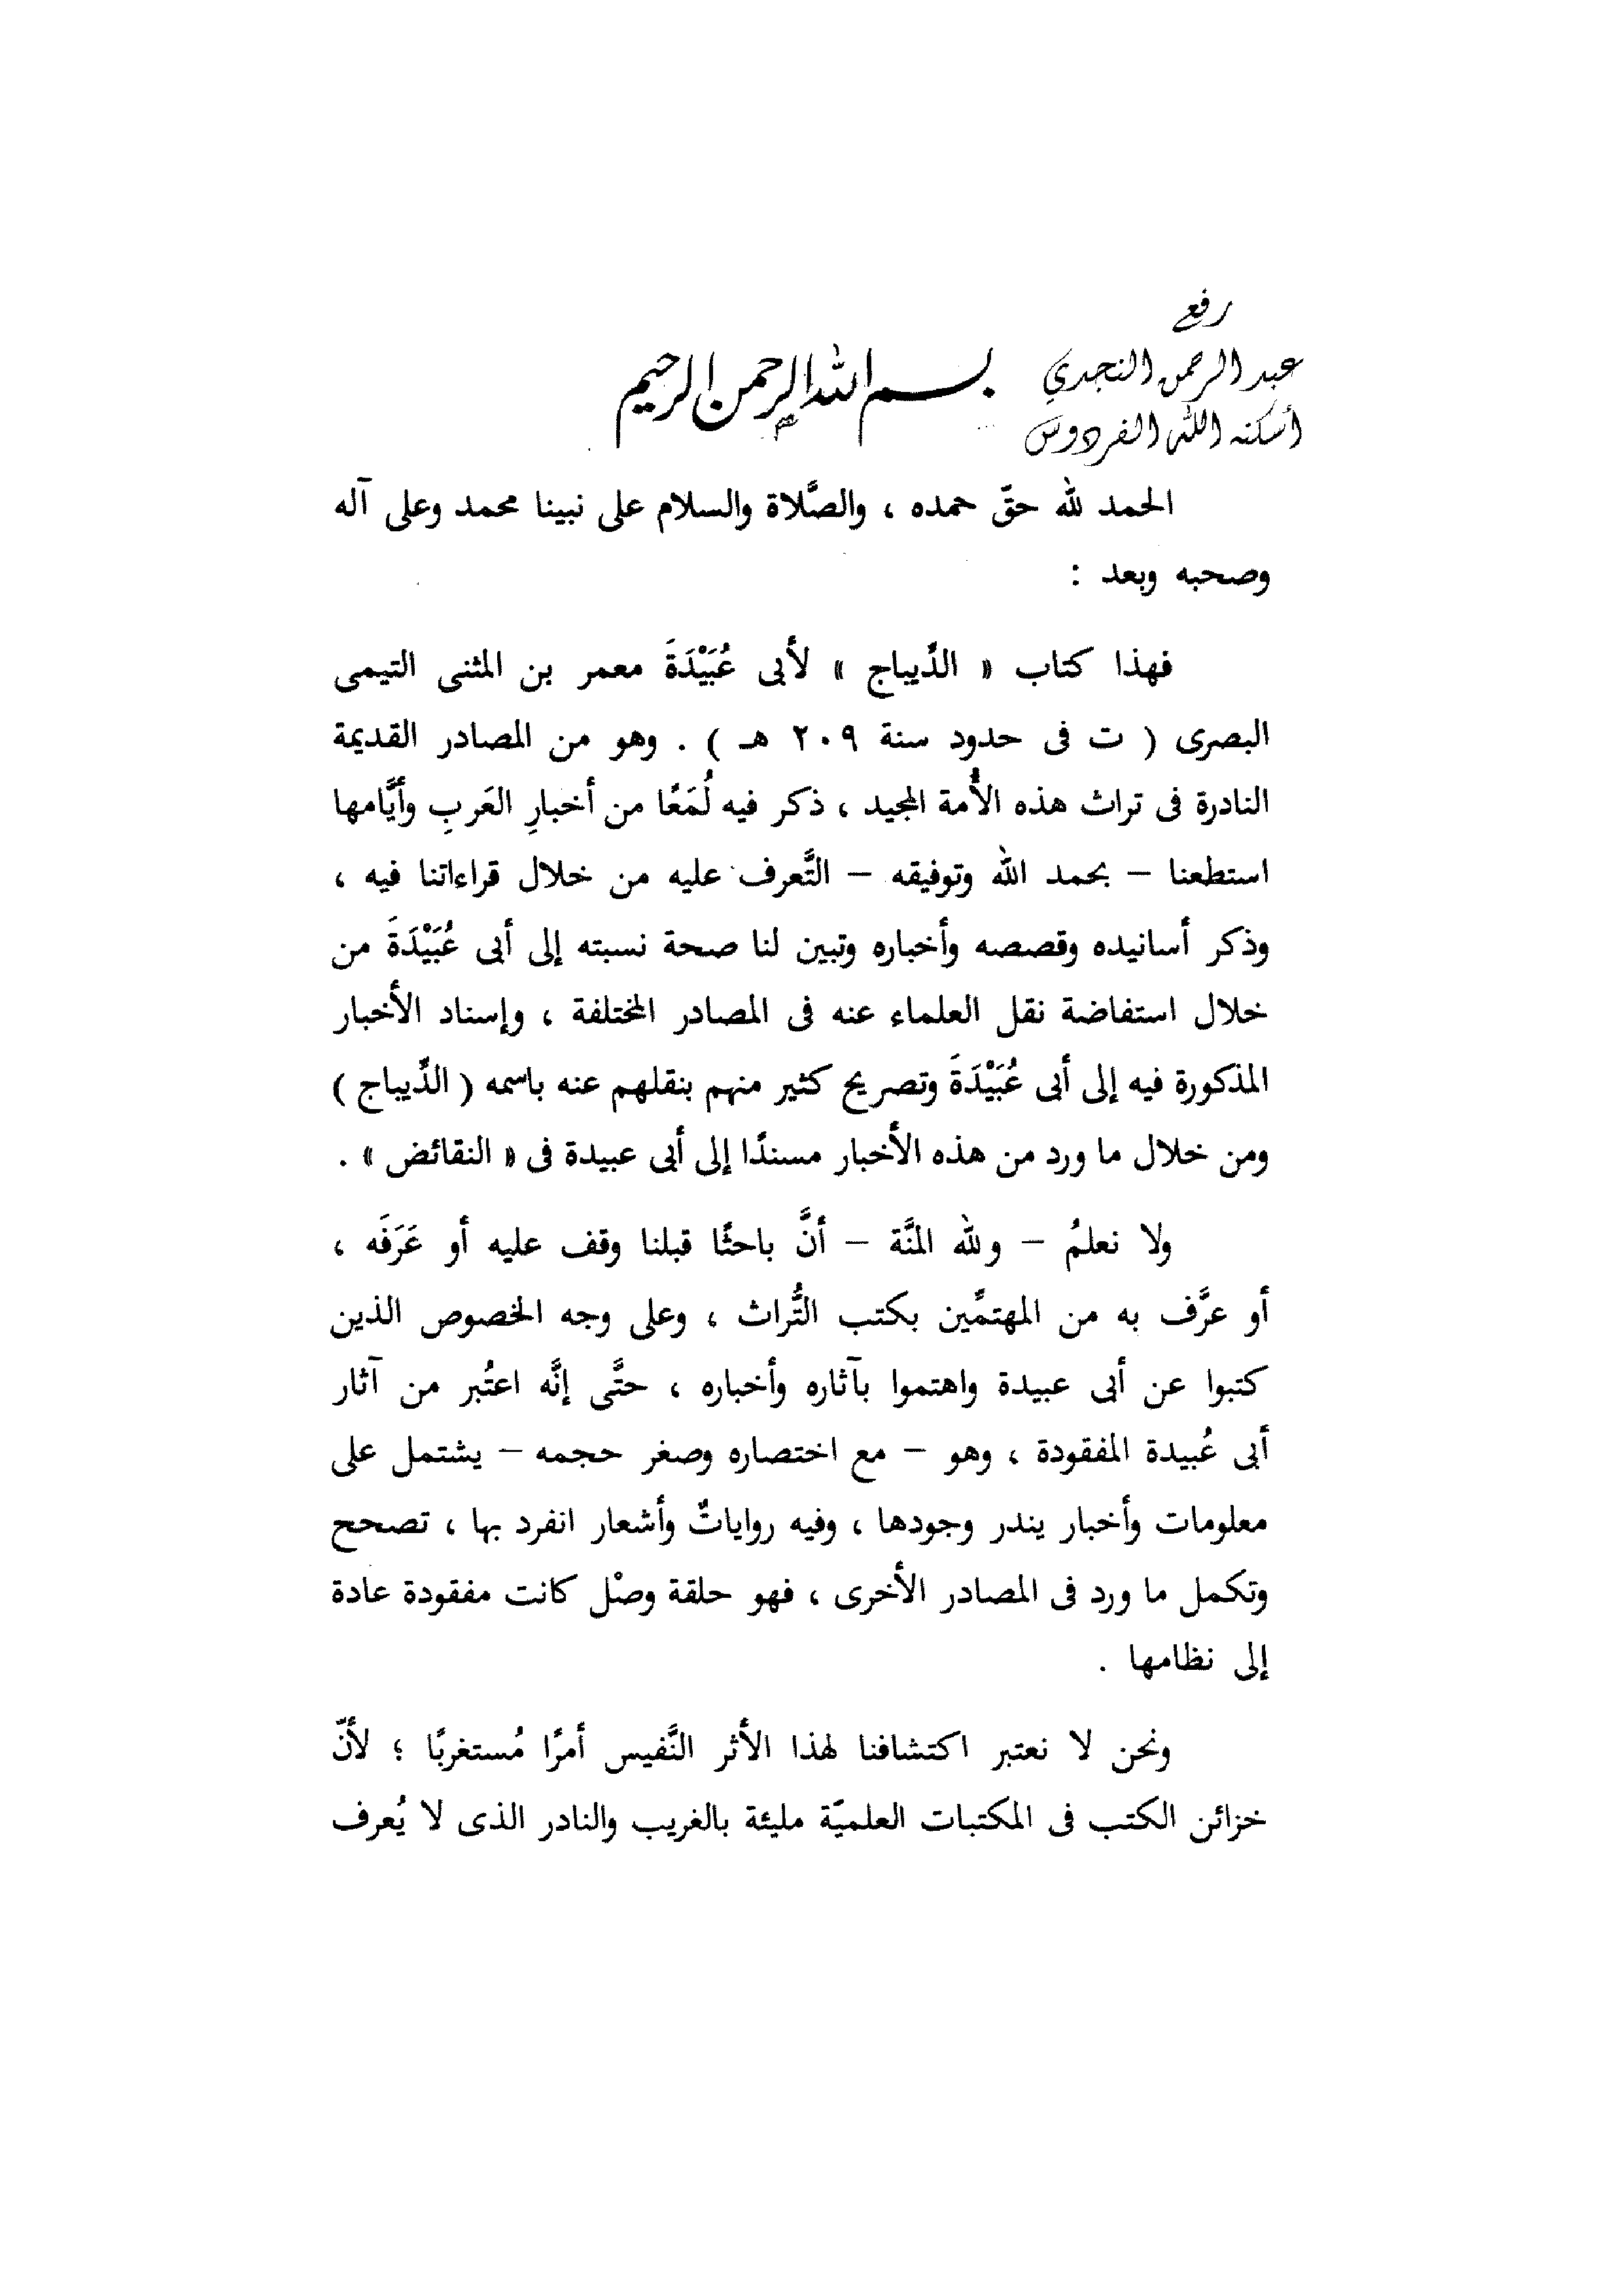 رفع
عبد الرحمن النجدي
أسكنه الله الفردوس
بسم الله الرحمن الرحيم
الحمد لله حقّ حمده ، والصَّلاة والسلام على نبينا محمد وعلى آله
وصحبه وبعد :
فهذا كتاب « الدِّيباج » لأبى عُبَيْدَةَ معمر بن المثنى التيمى
البصرى ( ت فى حدود سنة ٢٠٩ هـ ) . وهو من المصادر القديمة
النادرة فى تراث هذه الأُمة المجيد ، ذكر فيه لُمَعًا من أخبارِ العَربِ وأيَّامها
استطعنا – بحمد الله وتوفيقه – التَّعرف عليه من خلال قراءاتنا فيه ،
وذكر أسانيده وقصصه وأخباره وتبين لنا صحة نسبته إلى أبى عُبَيْدَةَ من
خلال استفاضة نقل العلماء عنه فى المصادر المختلفة ، وإسناد الأخبار
المذكورة فيه إلى أبى عُبَيْدَةَ وتصريح كثير منهم بنقلهم عنه باسمه ( الدِّيباج )
ومن خلال ما ورد من هذه الأَخبار مسندًا إلى أبى عبيدة فى « النقائض » .
ولا نعلمُ – ولله المنَّة – أنَّ باحثًا قبلنا وقف عليه أو عَرَفَه ،
أو عرَّف به من المهتمِّين بكتب التُّراث ، وعلى وجه الخصوص الذين
كتبوا عن أبى عبيدة واهتموا بآثاره وأخباره ، حتَّى إنَّه اعتُبر من آثار
أبى عُبيدة المفقودة ، وهو – مع اختصاره وصغر حجمه – يشتمل على
معلومات وأخبار يندر وجودها ، وفيه رواياتٌ وأشعار انفرد بها ، تصحح
وتكمل ما ورد فى المصادر الأخرى ، فهو حلقة وصْل كانت مفقودة عادة
إلى نظامها .
ونحن لا نعتبر اكتشافنا لهذا الأثر النَّفيس أمرًا مُستغربًا ؛ لأنّ
خزائن الكتب فى المكتبات العلميّة مليئة بالغريب والنادر الذى لا يُعرف